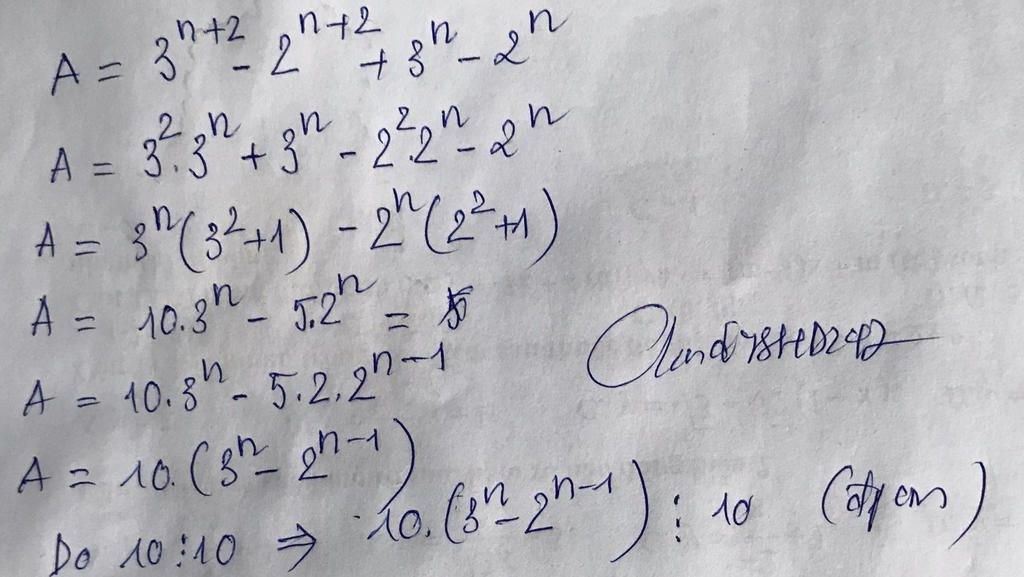 A = 3^{n+2} - 2^{n+2} + 3^n - 2^n
A = 3^2.3^n + 3^n - 2^2.2^n - 2^n
A = 3^n(3^2+1) - 2^n(2^2+1)
A = 10.3^n - 5.2^n =
A = 10.3^n - 5.2.2^{n-1}
A = 10.(3^n - 2^{n-1})
Do 10⋮10 ⇒ 10.(3^n - 2^{n-1}) ⋮ 10 (đpcm)